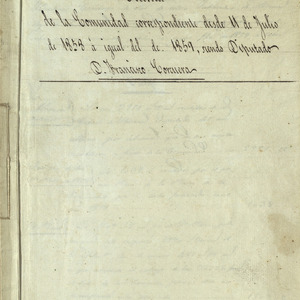 de la Comunidad correspondiente desde 11 de Julio
de 1858 á igual del de 1859, siendo Diputado
D. Francisco Corcuera